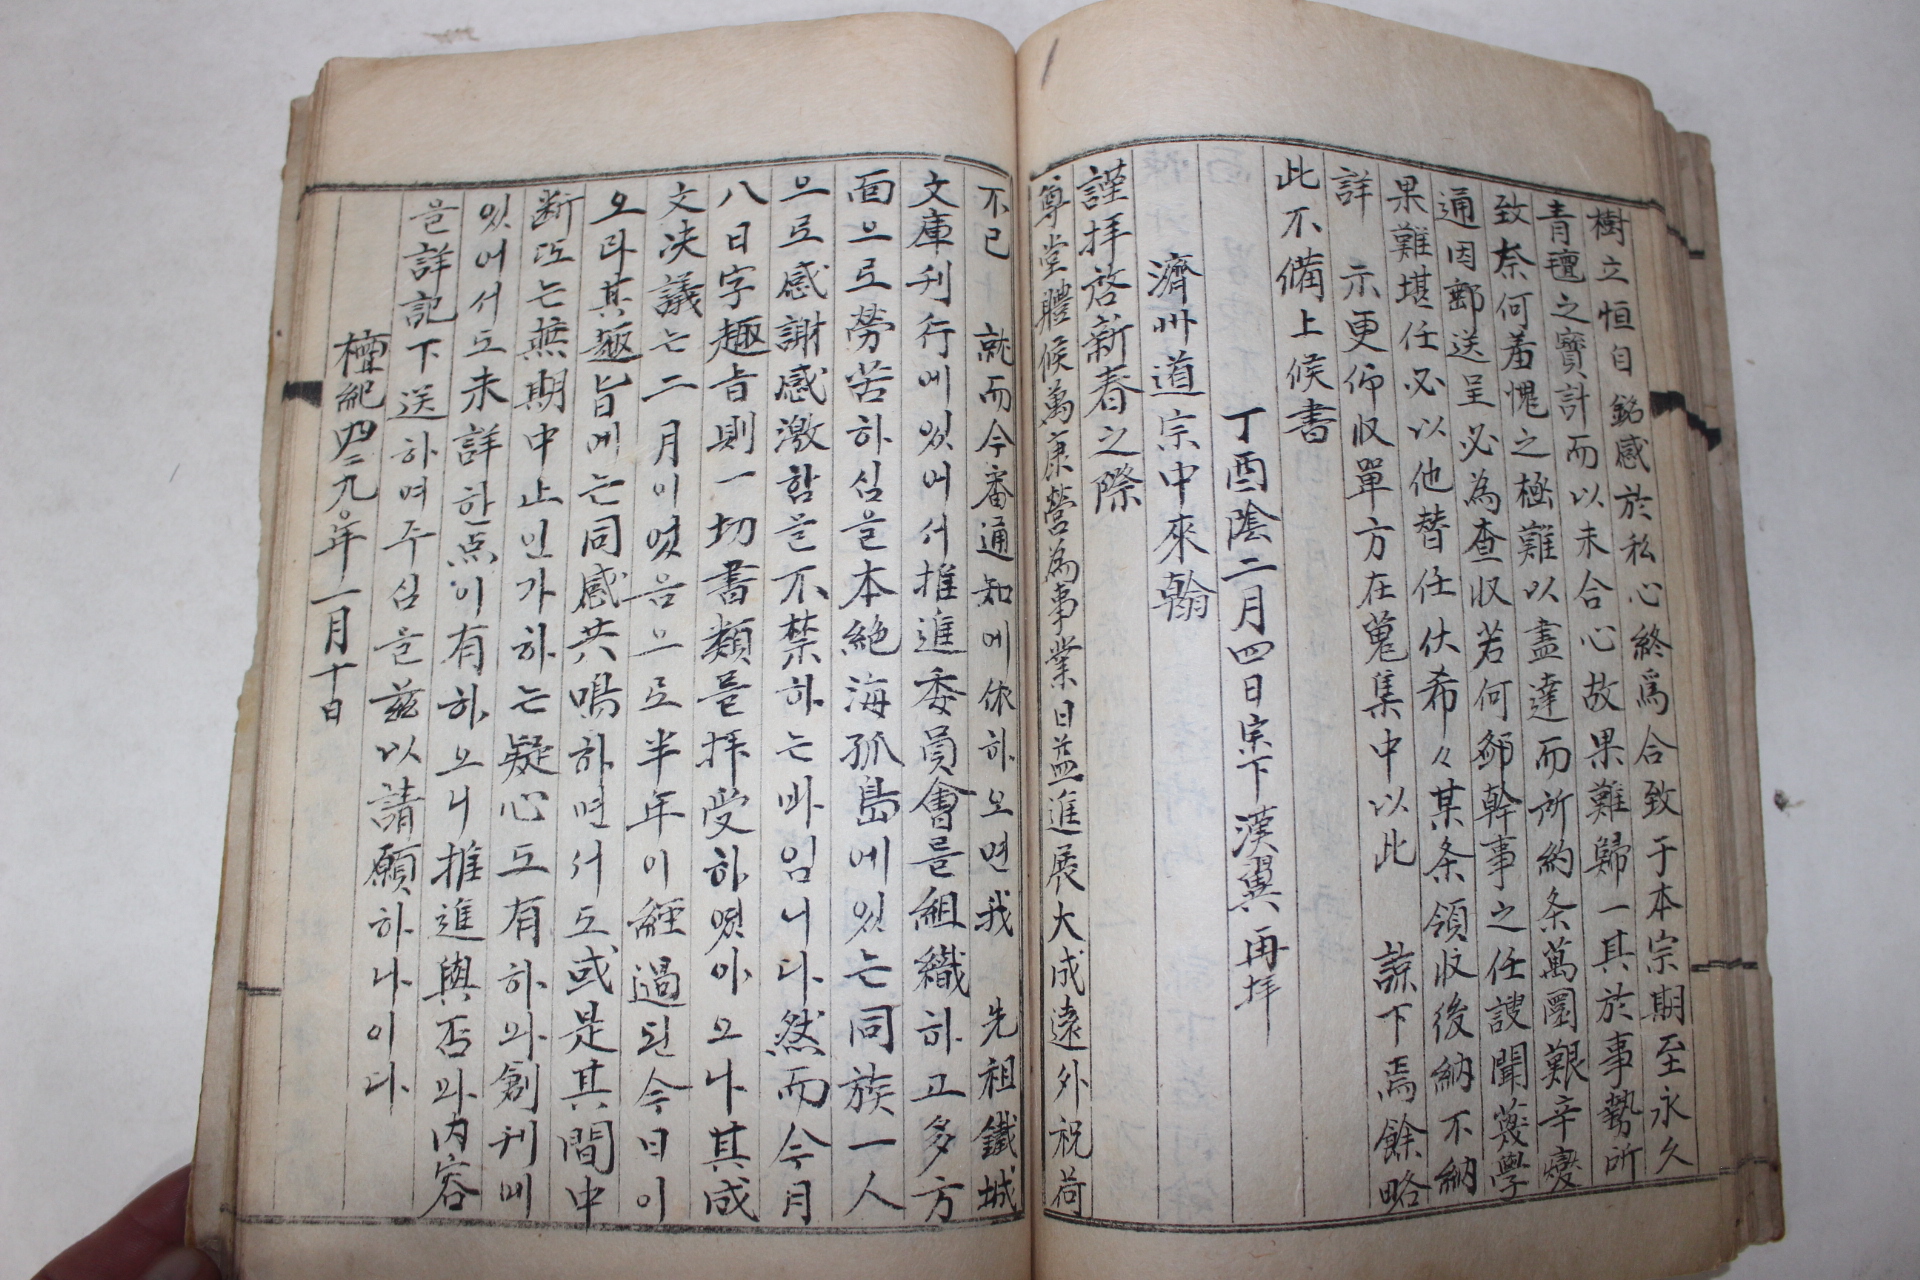 樹立恒自銘感於私心終爲合致于本宗期至永久
青氊之寶計而以未合心故果難歸一其於事勢所
致奈何羞愧之極難以盡達而所約条萬圜艱辛變
通因郵送呈必為查収若何鄒幹事之任謏聞蔑學
果難堪任必以他替任伏希々某条領收後納不納
詳示更仰收單方在蒐集中以此 諒下焉餘略
此不備上候書
丁酉陰二月四日宗下漢翼再拝
濟州道宗中來翰
謹拝啓新春之際
尊堂體候萬康營為事業日益進展大成遠外祝荷
不已 就而今番通知에依하오면我 先祖鐵城
文庫刊行에있어서推進委員會를組織하고多方
面으로勞苦하심을本絶海孤島에있는同族一人
으로感謝感激함을不禁하는바임니다然而今月
八日字趣旨則一切書類를拝受하였아오나其成
文決議는二月이였음으로半年이經過된今日이
오라其趣旨에는同感共鳴하면서도或是其間中
断또는無期中止인가하는疑心도有하와創刊에
있어서도未詳한点이有하오니推進與否와内容
을詳記下送하여주심을玆以請願하나이다
檀紀四二九〇年一月十日